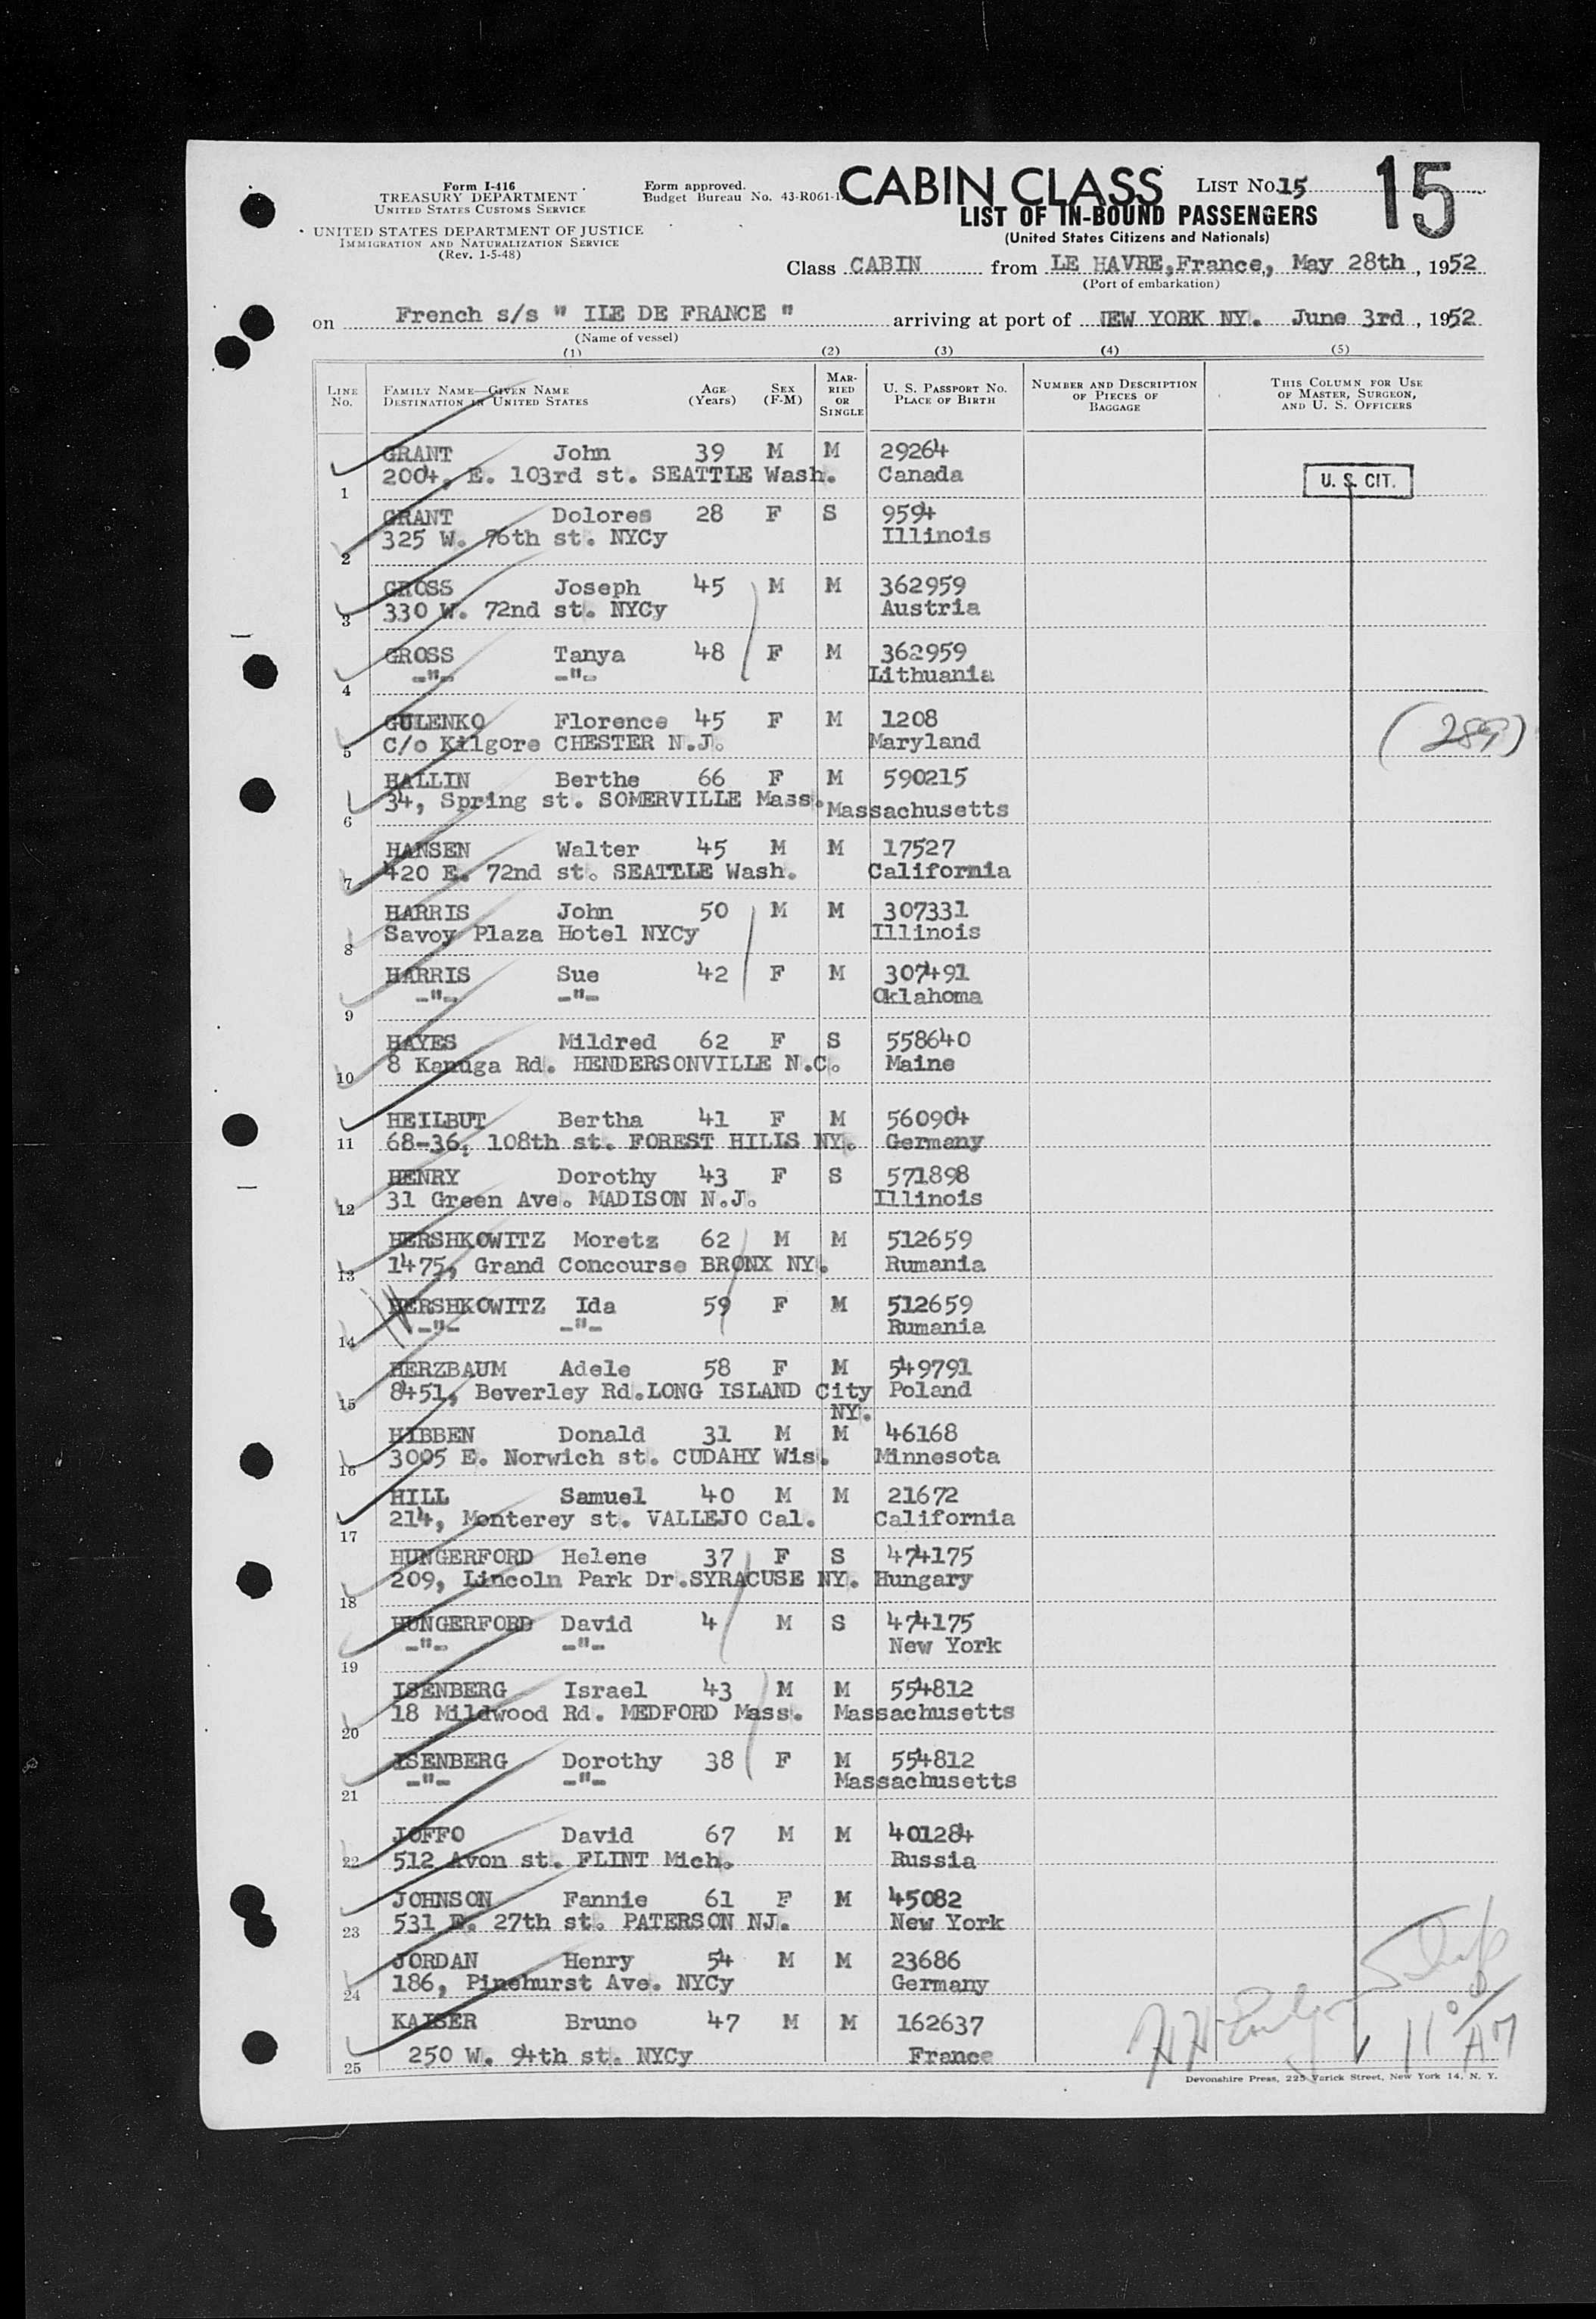 Form I-416
TREASURY DEPARTMENT
UNITED STATES CUSTOMS SERVICE
UNITED STATES DEPARTMENT OF JUSTICE
IMMIGRATION AND NATURALIZATION SERVICE
(Rev. 1-5-48)
Form approved.
Budget Bureau No. 43-R061-1.
CABIN CLASS
LIST No. 15
15
LIST OF IN-BOUND PASSENGERS
(United States Citizens and Nationals)
Class CABIN from LE HAVRE,France, May 28th, 1952
(Port of embarkation)
on French s/s " ILE DE FRANCE " arriving at port of NEW YORK NY. June 3rd, 1952
(Name of vessel)
(1) (2) (3) (4) (5)
LINE No. FAMILY NAME—GIVEN NAME DESTINATION IN UNITED STATES AGE (Years) SEX (F-M) MARRIED OR SINGLE U. S. PASSPORT NO. PLACE OF BIRTH NUMBER AND DESCRIPTION OF PIECES OF BAGGAGE THIS COLUMN FOR USE OF MASTER, SURGEON, AND U. S. OFFICERS
GRANT John 39 M M 29264
1 2004, E. 103rd st. SEATTLE Wash. Canada U. S. CIT.
GRANT Dolores 28 F S 9594
2 325 W. 76th st. NYCy Illinois
GROSS Joseph 45 M M 362959
3 330 W. 72nd st. NYCy Austria
GROSS Tanya 48 F M 362959
4 -"- -"- Lithuania
GULENKO Florence 45 F M 1208
5 C/o Kilgore CHESTER N.J. Maryland (289)
HALLIN Berthe 66 F M 590215
6 34, Spring st. SOMERVILLE Mass. Massachusetts
HANSEN Walter 45 M M 17527
7 420 E. 72nd st. SEATTLE Wash. California
HARRIS John 50 M M 307331
8 Savoy Plaza Hotel NYCy Illinois
HARRIS Sue 42 F M 307491
9 -"- -"- Oklahoma
HAYES Mildred 62 F S 558640
10 8 Kanuga Rd. HENDERSONVILLE N.C. Maine
HEILBUT Bertha 41 F M 560904
11 68-36, 108th st. FOREST HILLS NY. Germany
HENRY Dorothy 43 F S 571898
12 31 Green Ave. MADISON N.J. Illinois
HERSHKOWITZ Moretz 62 M M 512659
13 1475, Grand Concourse BRONX NY. Rumania
HERSHKOWITZ Ida 59 F M 512659
14 -"- -"- Rumania
HERZBAUM Adele 58 F M 549791
15 8451, Beverley Rd.LONG ISLAND City NY. Poland
HIBBEN Donald 31 M M 46168
16 3005 E. Norwich st. CUDAHY Wis. Minnesota
HILL Samuel 40 M M 21672
17 214, Monterey st. VALLEJO Cal. California
HUNGERFORD Helene 37 F S 474175
18 209, Lincoln Park Dr.SYRACUSE NY. Hungary
HUNGERFORD David 4 M S 474175
19 -"- -"- New York
ISENBERG Israel 43 M M 554812
20 18 Mildwood Rd. MEDFORD Mass. Massachusetts
ISENBERG Dorothy 38 F M 554812
21 -"- -"- Massachusetts
JOFFO David 67 M M 401284
22 512 Avon st. FLINT Mich. Russia
JOHNSON Fannie 61 F M 45082
23 531 E. 27th st. PATERSON NJ. New York
JORDAN Henry 54 M M 23686
24 186, Pinehurst Ave. NYCy Germany
KAISER Bruno 47 M M 162637
25 250 W. 94th st. NYCy France
Devonshire Press, 225 Varick Street, New York 14, N. Y.